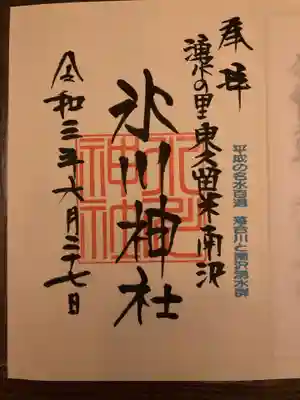 奉拝
平成の名水百選 落合川と南沢湧水群
湧水の里 東久留米 南沢
氷川神社
令和三年六月二十七日